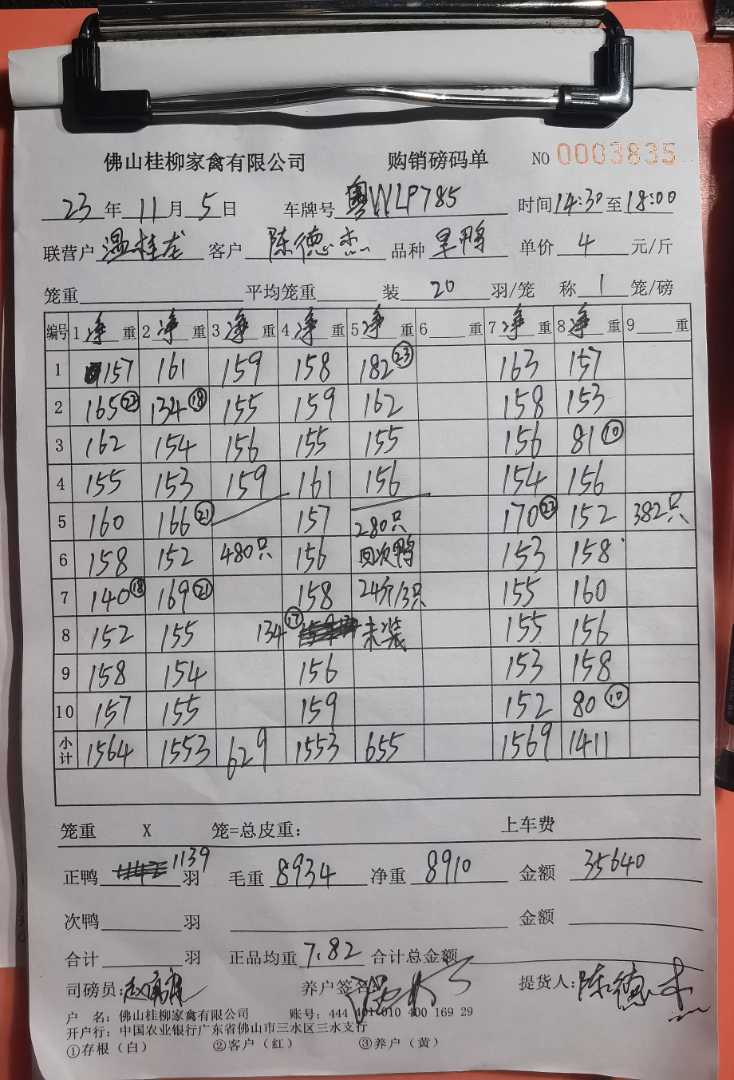 佛山桂柳家禽有限公司 购销磅码单 NO 0003835
23年11月5日 车牌号 粤WLP785 时间14:30至18:00
联营户 温桂龙 客户 陈德杰 品种 旱鸭 单价 4 元/斤
笼重 平均笼重 装 20 羽/笼 称 1 笼/磅
编号 1 净重 2 净重 3 净重 4 净重 5 净重 6 重 7 净重 8 净重 9 重
1 157 161 159 158 182㉓ 163 157
2 165㉒ 134⑱ 155 159 162 158 153
3 162 154 156 155 155 156 81⑩
4 155 153 159 161 156 154 156
5 160 166㉑ 157 280只 170㉓ 152 382只
6 158 152 480只 156 回次鸭 153 158
7 140⑱ 169㉑ 158 24斤/3只 155 160
8 152 155 134⑰ 未装 155 156
9 158 154 156 153 158
10 157 155 159 152 80⑩
小计 1564 1553 629 1553 655 1569 1411
笼重 X 笼=总皮重: 上车费
正鸭 1139 羽 毛重 8934 净重 8910 金额 35640
次鸭 羽 金额
合计 羽 正品均重 7.82 合计总金额
司磅员: 养户签名 提货人: 陈德杰
户 名: 佛山桂柳家禽有限公司 账号: 444 010 400 169 29
开户行: 中国农业银行广东省佛山市三水区三水支行
①存根(白) ②客户(红) ③养户(黄)